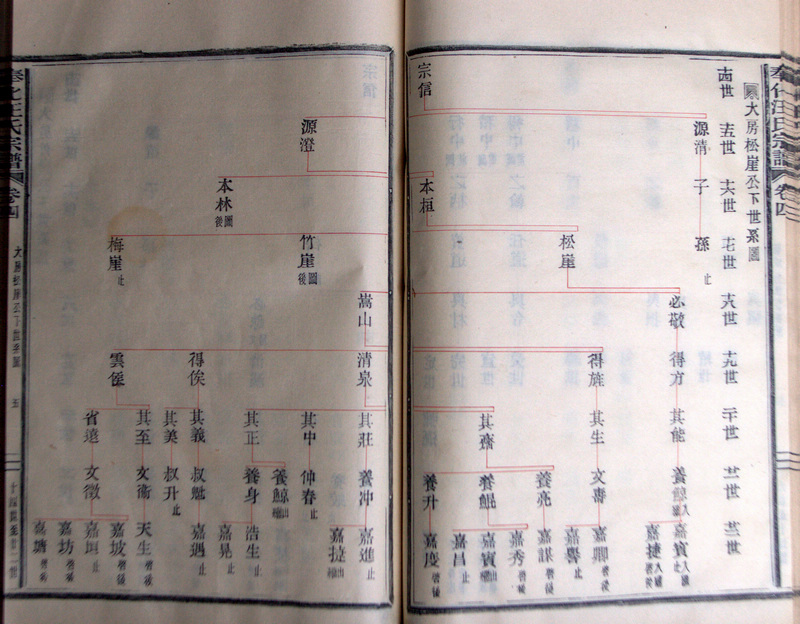 奉化汪氏宗譜
卷四
大房松崖公下世系圖
十四世
十五世
十六世
十七世
十八世
十九世
二十世
廿一世
廿二世
宗信
源清 子 孫 止
本桓
松崖
必敬 得方 其能 養鯨 入繼 嘉賓 入繼 止
嘉捷
得旌 其生 文壽 嘉卿
嘉譽 止
其齋 養亮 嘉謀
嘉秀
養鯤 嘉賓 出繼
嘉昌 止
養升 嘉度
源澄
本林 圖後
竹崖 圖後
梅崖 止
嵩山 清泉 其莊 養冲 嘉進 止
嘉捷 出繼
其中 仲春 止
養鯨 出繼
其正 養身 浩生 止
嘉晃 止
得俟 其義 叔魁 嘉遇 止
其美 叔升 止
雲 其至 文衡 天生
嘉坡
省遠 文徵 嘉垣 止
嘉坊
嘉塘
奉化汪氏宗譜
卷四
大房松崖公下世系圖
五